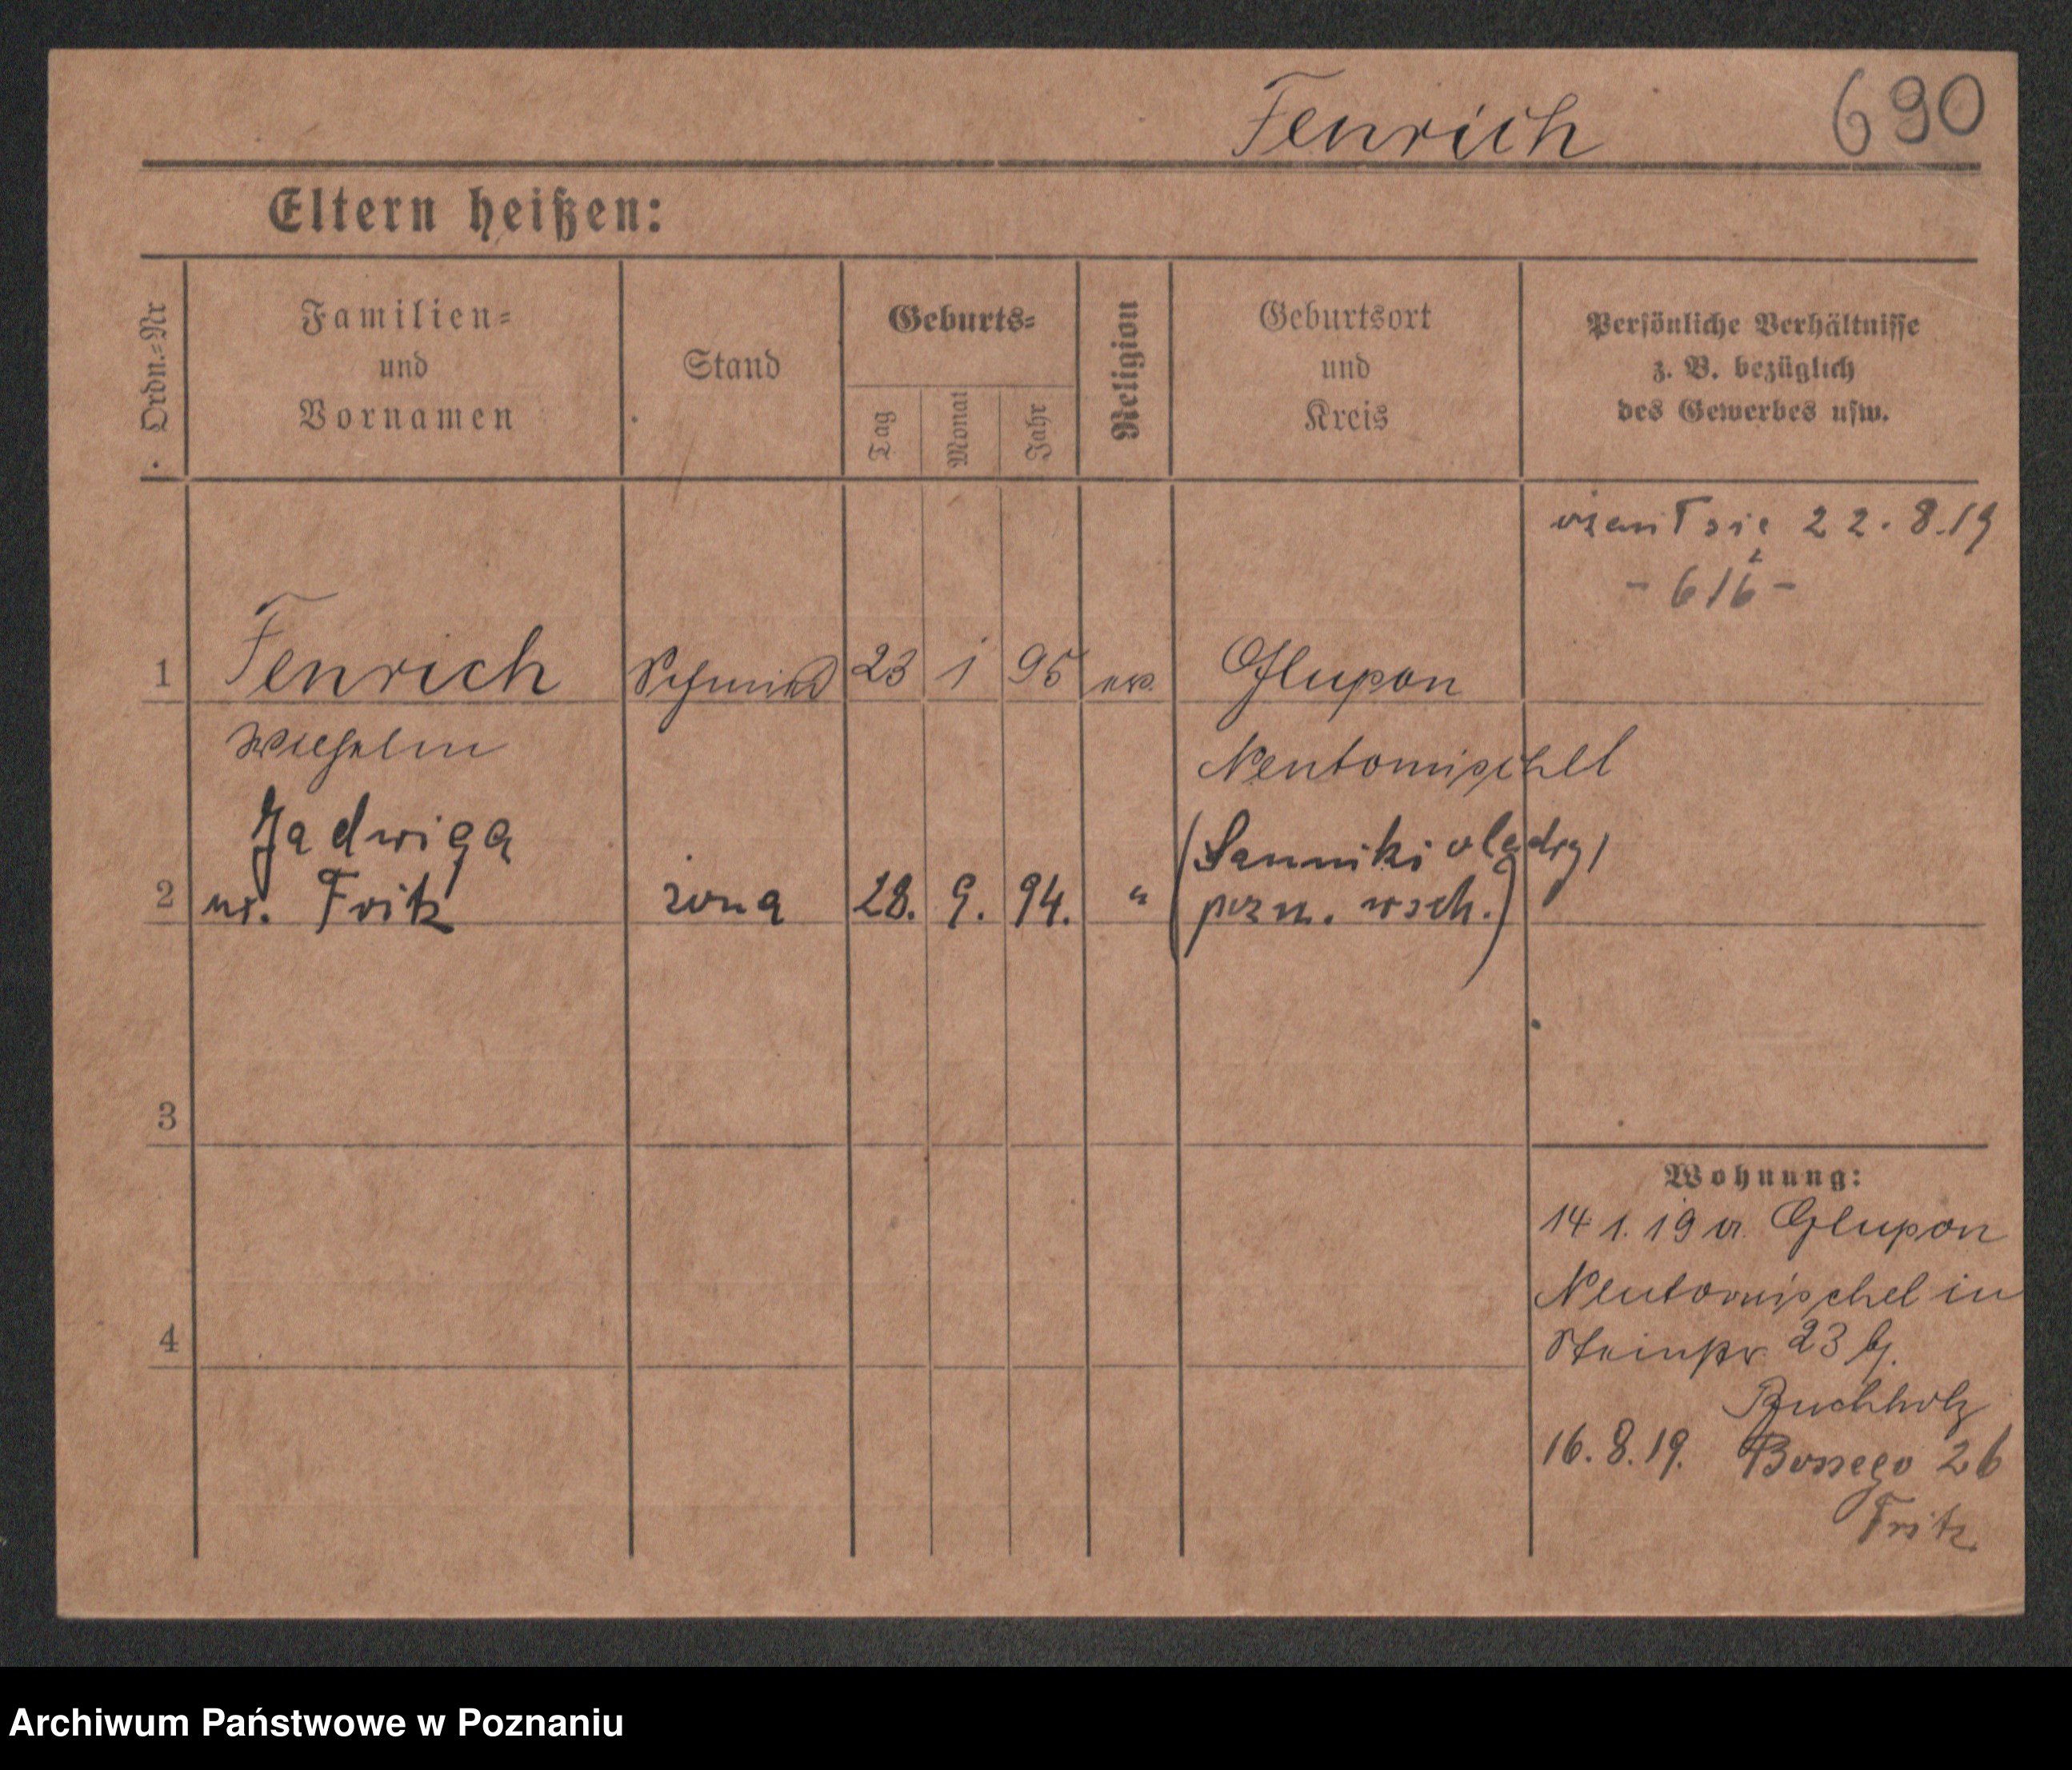 Fenrich 690
Eltern heißen:
Ordn.=Nr
Familien=
und
Vornamen
Stand
Geburts=
Tag
Monat
Jahr
Religion
Geburtsort
und
Kreis
Persönliche Verhältnisse
z. B. bezüglich
des Gewerbes usw.
ożenił się 22.8.19
1 Fenrich Schmied 23 1 95 ev. Glupon
Wilhelm Neutomischel
Jadwiga (Sanniki olędry)
2 ur. Fritz żona 28. 9. 94. " pozn. wsch.)
3
4
Wohnung:
14 1. 19 a Glupon
Neutomischel in
Steinstr 23 bj.
Buchholz
16.8.19. Bossego 26
Fritz
Archiwum Państwowe w Poznaniu